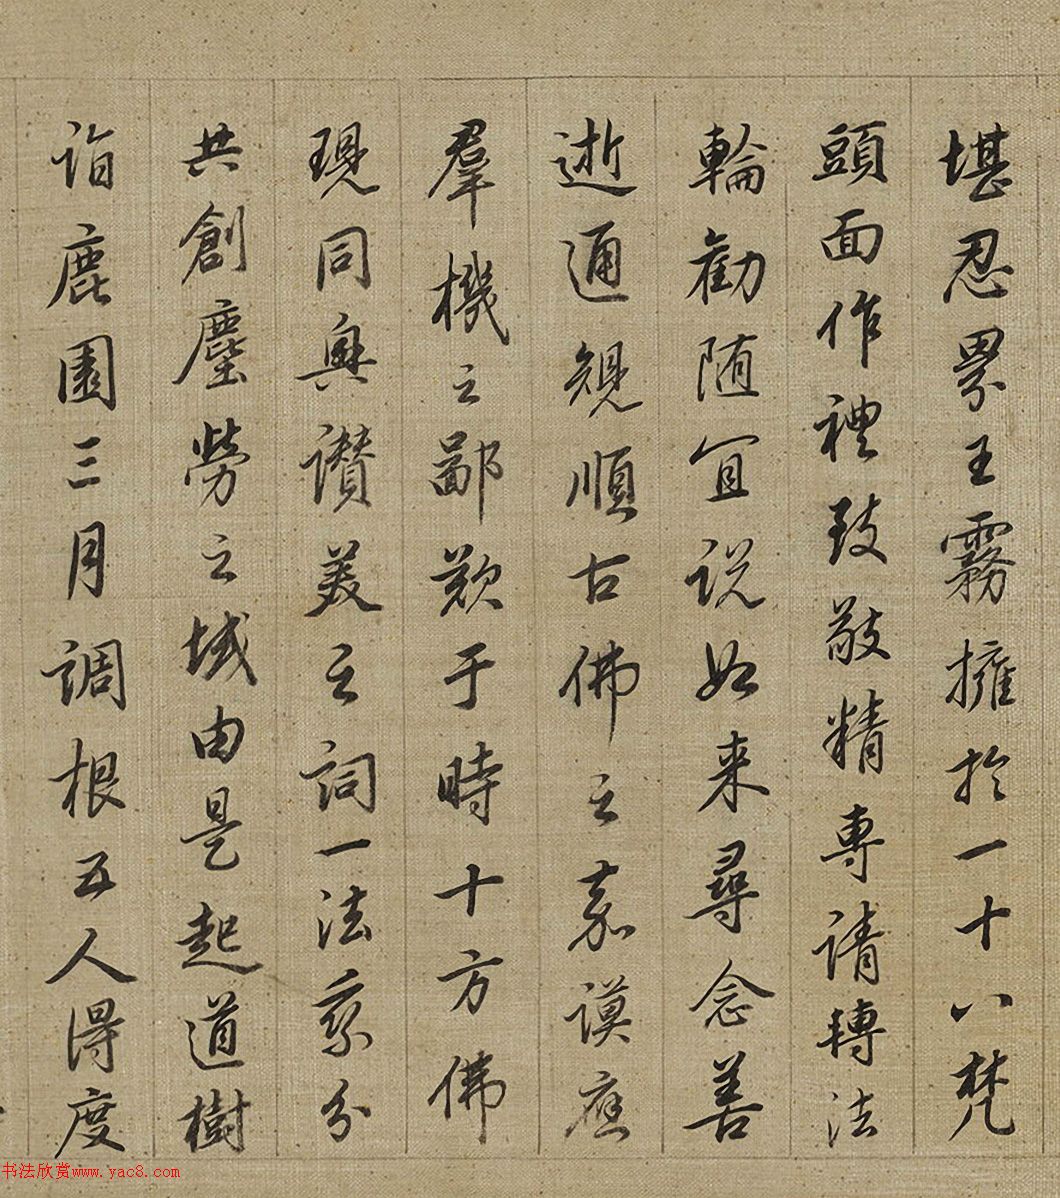 堪忍界王霧擁於一十八梵
頭面作禮致敬精專請轉法
輪勸随宜説如来尋念善
逝通觀順古佛之嘉謨應
羣機之鄙歎于時十方佛
現同興讃美之詞一法乘分
共創塵勞之域由是起道樹
詣鹿園三月調根五人得度
书法欣赏www.yac8.com